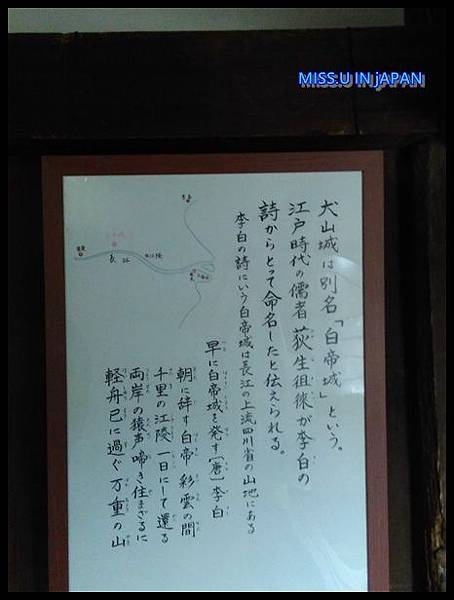 MISS.U IN jAPAN
犬山城は別名「白帝城」という。
江戸時代の儒者 荻生徂徠が李白の
詩からとって命名したと伝えられる。
李白の詩にいう白帝城は長江の上流四川省の山地にある
早に白帝城を発す〔唐〕李白
朝に辞す白帝 彩雲の間
千里の江陵 一日にして還る
両岸の猿声啼き住まざるに
軽舟已に過ぐ万重の山
長江